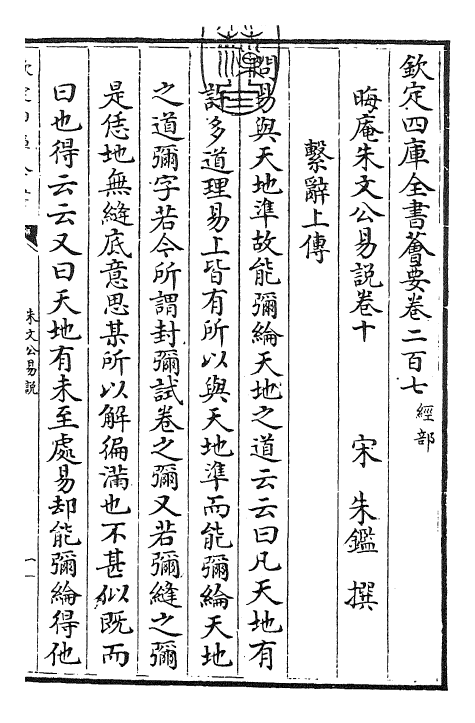 欽定四庫全書薈要卷二百七 經部
晦庵朱文公易説卷十
宋 朱鑑 撰
繫辭上傳
問易與天地準故能彌綸天地之道云云曰凡天地有
許多道理易上皆有所以與天地準而能彌綸天地
之道彌字若今所謂封彌試卷之彌又若彌縫之彌
是恁地無縫底意思某所以解徧滿也不甚似既而
曰也得云云又曰天地有未至處易却能彌綸得他
朱文公易説
一